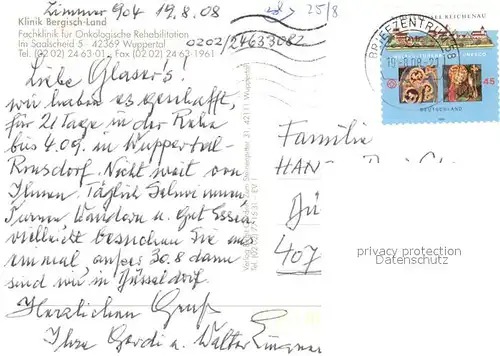 Zimmer 904 19.8.08
25/8
Klinik Bergisch-Land
Fachklinik für Onkologische Rehabilitation
Im Saalscheid 5 · 42369 Wuppertal
Tel. (02 02) 24 63-0 Fax (02 02) 24 63-1961
0202/24633082
Liebe Glaser's!
wir haben es geschafft,
für 21 Tage in der Reha
bis 4.09. in Wuppertal-
Ronsdorf. Nicht weit von
Ihnen. Täglich Schwimmen,
Turnen Wandern u. gut Essen,
vielleicht besuchen Sie uns
einmal außer 30.8 dann
sind wir in Düsseldorf.
Herzlichen Gruß
Ihre Gerdi u. Walter
Familie
HAN
Dü
407
BRIEFZENTRUM 58
REICHENAU
UNESCO
45
DEUTSCHLAND
privacy protection
Datenschutz